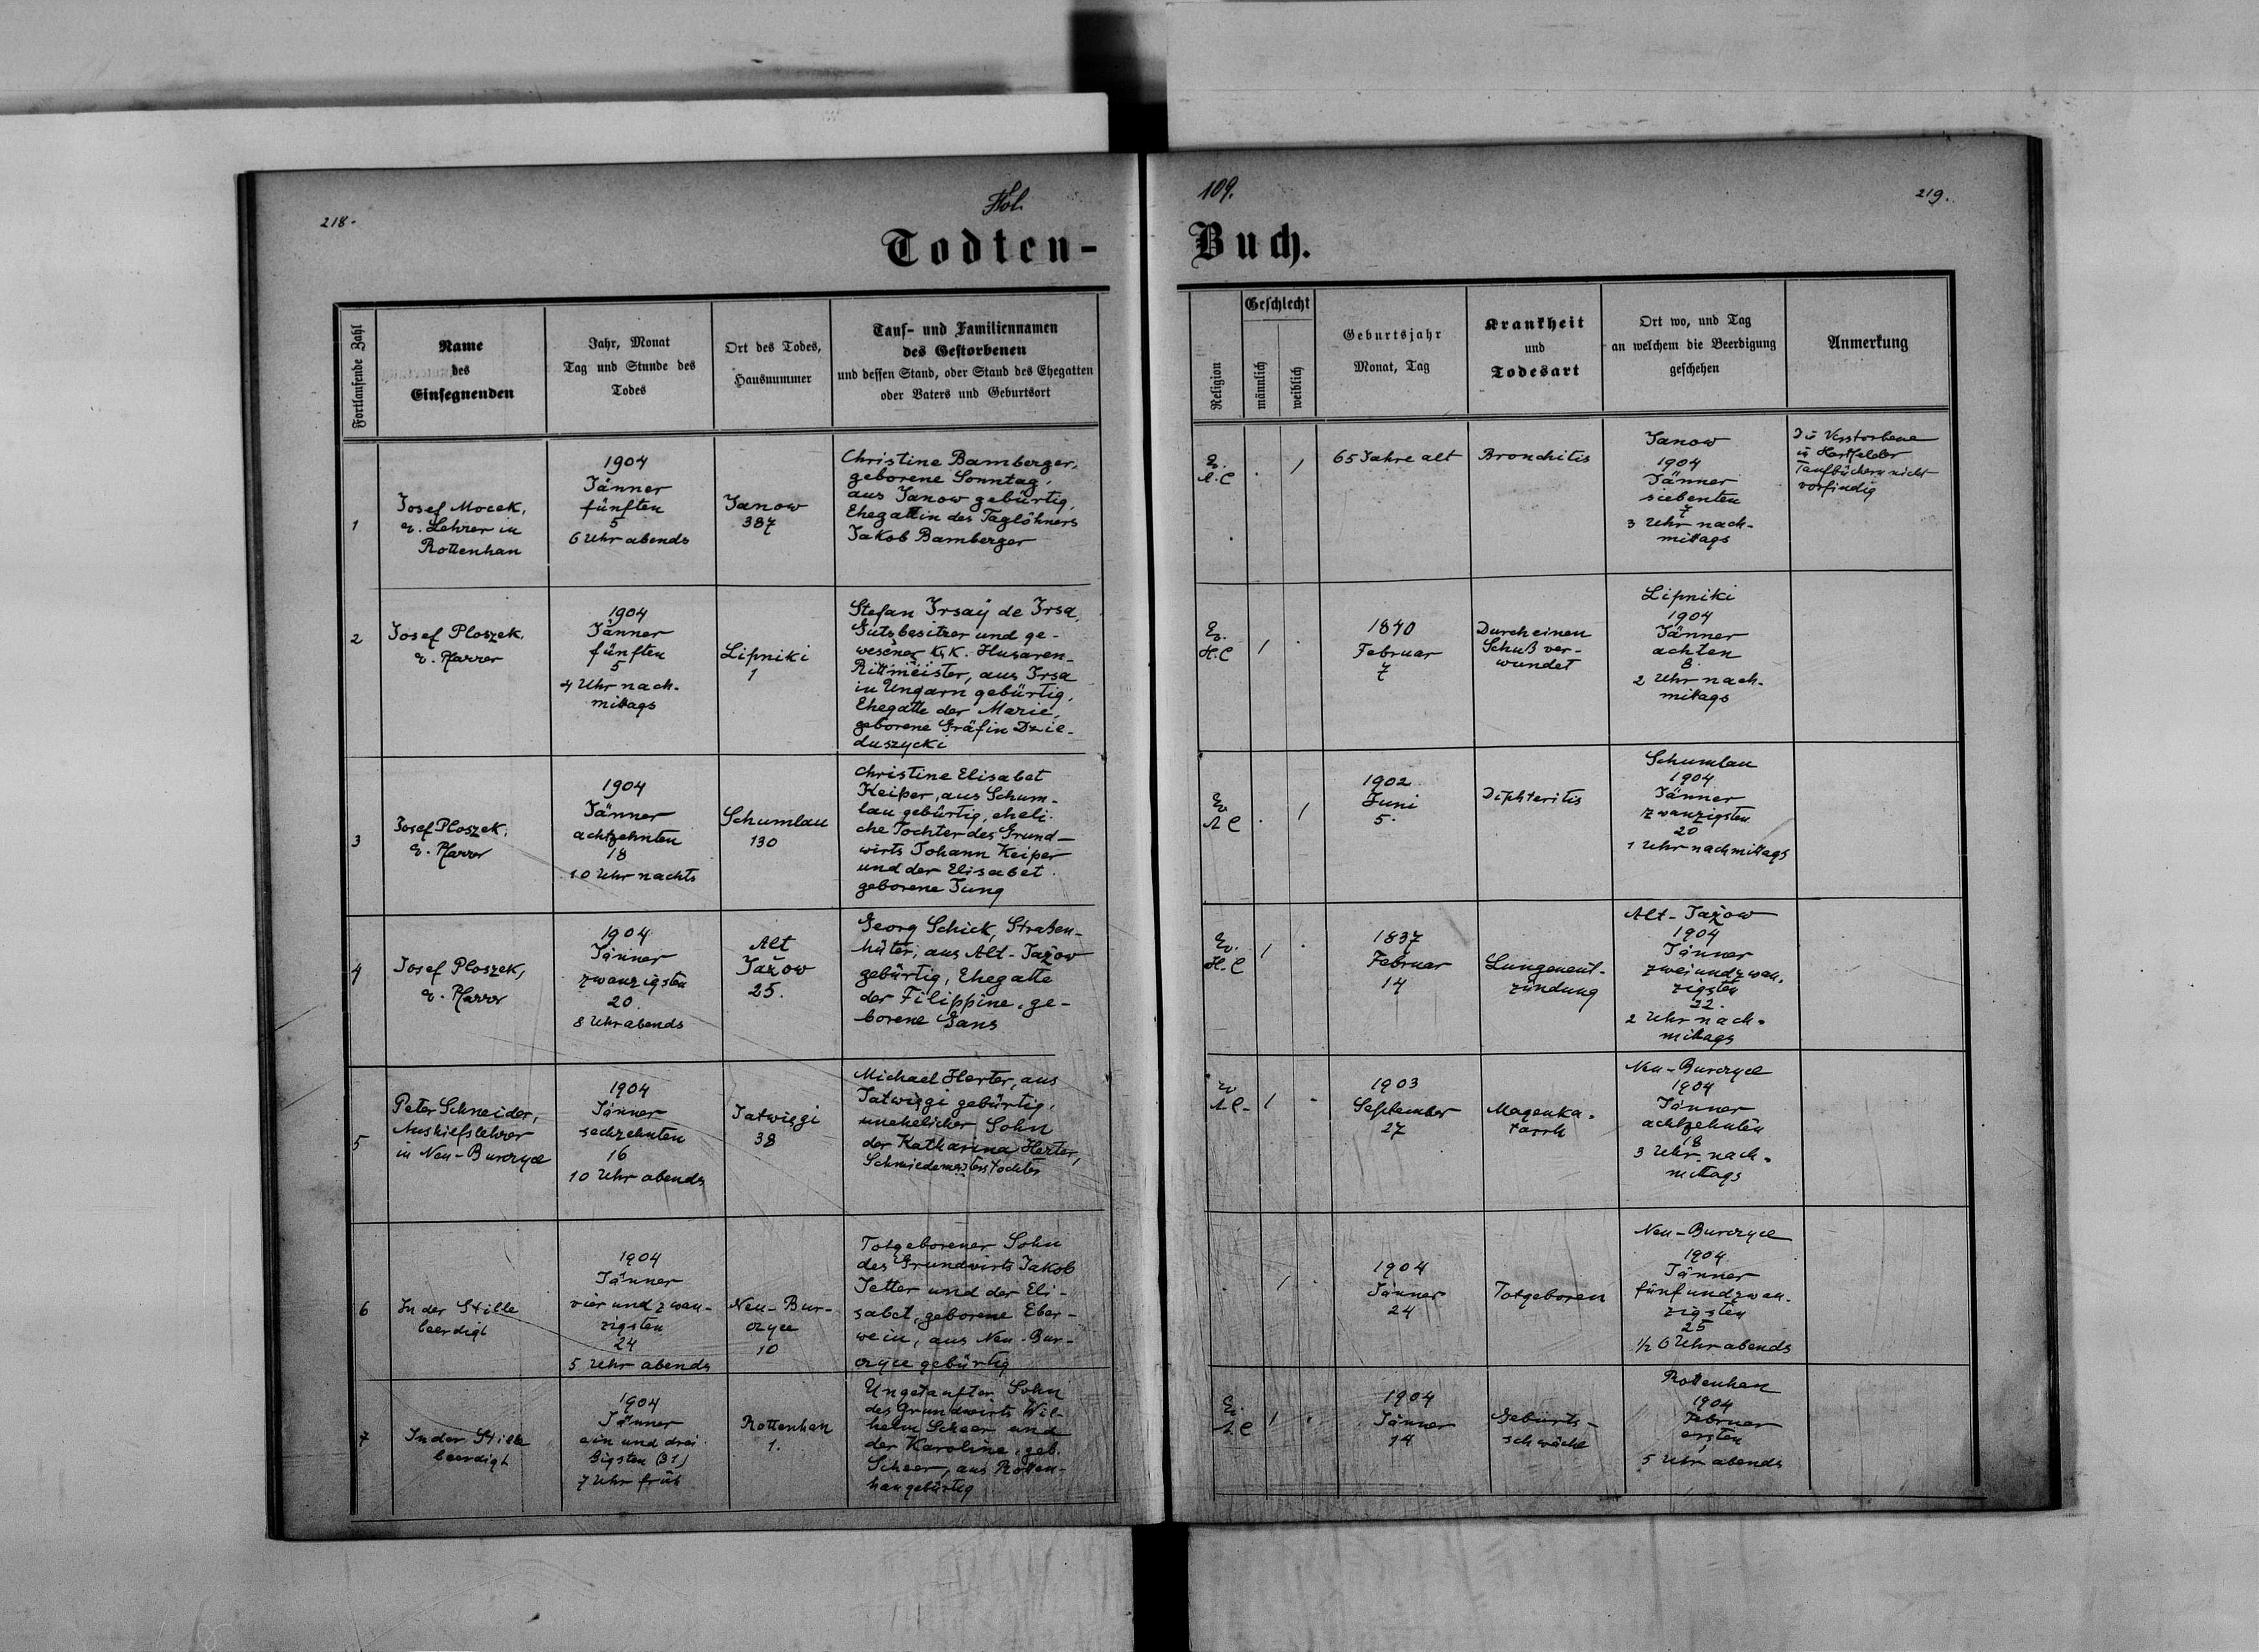 218.
Fol.
109.
219.
Todten-
Buch.
Fortlaufende Zahl
Name
des
Einsegnenden
Jahr, Monat
Tag und Stunde des
Todes
Ort des Todes,
Hausnummer
Tauf- und Familiennamen
des Gestorbenen
und dessen Stand, oder Stand des Ehegatten
oder Vaters und Geburtsort
Religion
Geschlecht
männlich
weiblich
Geburtsjahr
Monat, Tag
Krankheit
und
Todesart
Ort wo, und Tag
an welchem die Beerdigung
geschehen
Anmerkung
1
Josef Mocek,
e. Lehrer in
Rottenhan
1904
Jänner
fünften
5
6 Uhr abends
Janow
387
Christine Bamberger,
geborene Sonntag,
aus Janow gebürtig,
Ehegattin des Taglöhners
Jakob Bamberger
Ev.
A.C
1
65 Jahre alt
Bronchitis
Janow
1904
Jänner
siebenten
7
3 Uhr nach-
mittags
Die Verstorbene
in Hartfelder
Taufbüchern nicht
vorfindig
2
Josef Ploszek,
e. Pfarrer
1904
Jänner
fünften
5
4 Uhr nach-
mittags
Lipniki
1
Stefan Irsaÿ de Irsa,
Gutsbesitzer und ge-
wesener K.K. Husaren-
Rittmeister, aus Irsa
in Ungarn gebürtig,
Ehegatte der Marie,
geborene Gräfin Dzie-
duszycki
Ev.
H.C
1
1840
Februar
7
Durch einen
Schuß ver-
wundet
Lipniki
1904
Jänner
achten
8.
2 Uhr nach-
mittags
3
Josef Ploszek,
e. Pfarrer
1904
Jänner
achtzehnten
18
10 Uhr nachts
Schumlau
130
Christine Elisabet
Keiper, aus Schum-
lau gebürtig, eheli-
che Tochter des Grund-
wirts Johann Keiper
und der Elisabet
geborene Jung
Ev.
A C
1
1902
Juni
5.
Diphteritis
Schumlau
1904
Jänner
zwanzigsten
20
1 Uhr nachmittags
4
Josef Ploszek,
e. Pfarrer
1904
Jänner
zwanzigsten
20.
8 Uhr abends
Alt
Jażow
25.
Georg Schick, Straßen-
hüter, aus Alt-Jażow
gebürtig, Ehegatte
der Filippine, ge-
borene Gans
Ev.
H.C
1
1837
Februar
14
Lungenent-
zündung
Alt-Jażow
1904
Jänner
zweiundzwan-
zigsten
22.
2 Uhr nach-
mittags
5
Peter Schneider,
Aushilfslehrer
in Neu-Burczyce
1904
Jänner
sechzehnten
16
10 Uhr abends
Jatwięgi
38
Michael Herter, aus
Jatwięgi gebürtig,
unehelicher Sohn
der Katharina Herter,
Schmiedemeisterstochter
Ev
A C.
1
1903
September
27
Magenka-
tarrh
Neu-Burczyce
1904
Jänner
achtzehnten
18
3 Uhr nach-
mittags
6
In der Stille
beerdigt
1904
Jänner
vier und zwan-
zigsten
24
5 Uhr abends
Neu-Bur-
czyce
10
Totgeborener Sohn
des Grundwirts Jakob
Jetter und der Eli-
sabet, geborene Eber-
wein, aus Neu-Bur-
czyce gebürtig
1
1904
Jänner
24
Totgeboren
Neu-Burczyce
1904
Jänner
fünfundzwan-
zigsten
25
1/2 6 Uhr abends
7
In der Stille
beerdigt
1904
Jänner
ein und drei-
ßigsten (31)
7 Uhr früh
Rottenhan
1.
Ungetaufter Sohn
des Grundwirts Wil-
helm Scheer und
der Karoline, geb.
Scheer, aus Rotten-
han gebürtig
Ev.
A C
1
1904
Jänner
14
Geburts-
schwäche
Rottenhan
1904
Februar
ersten
1
5 Uhr abends